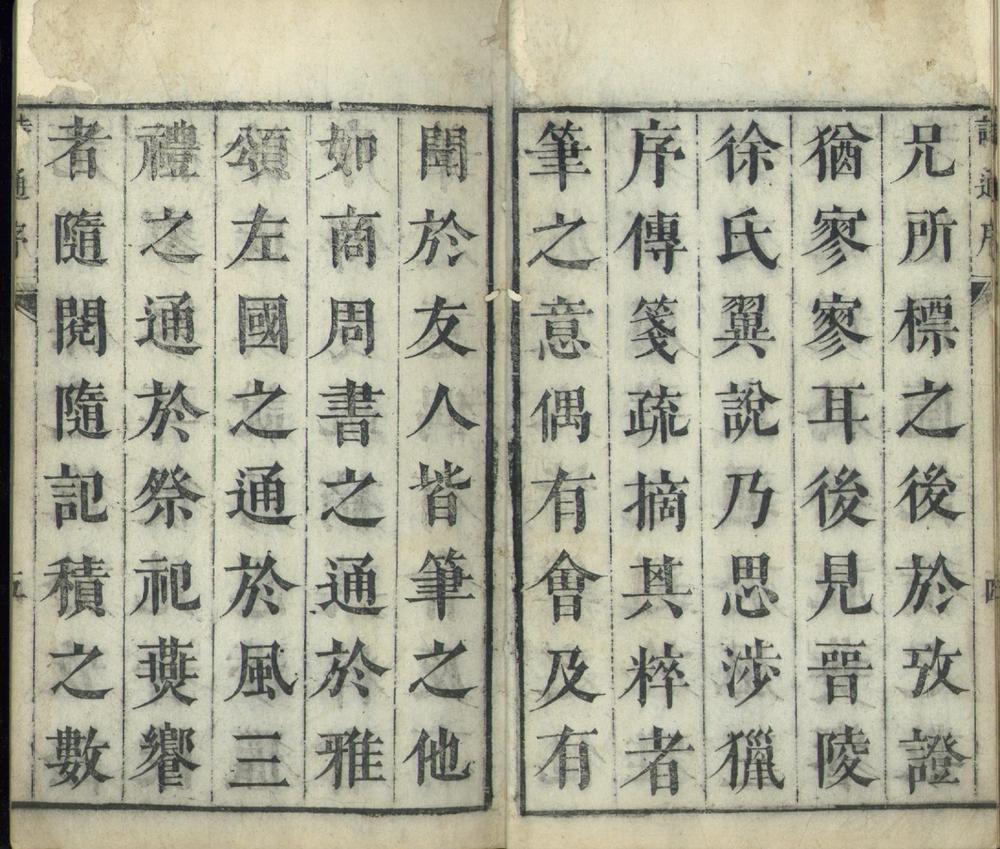 兄所標之後於攷證
猶寥寥耳後見晉陵
徐氏翼說乃思涉獵
序傳箋疏摘其粹者
筆之意偶有會及有
聞於友人皆筆之他
如商周書之通於雅
頌左國之通於風三
禮之通於祭祀燕饗
者隨閱隨記積之數